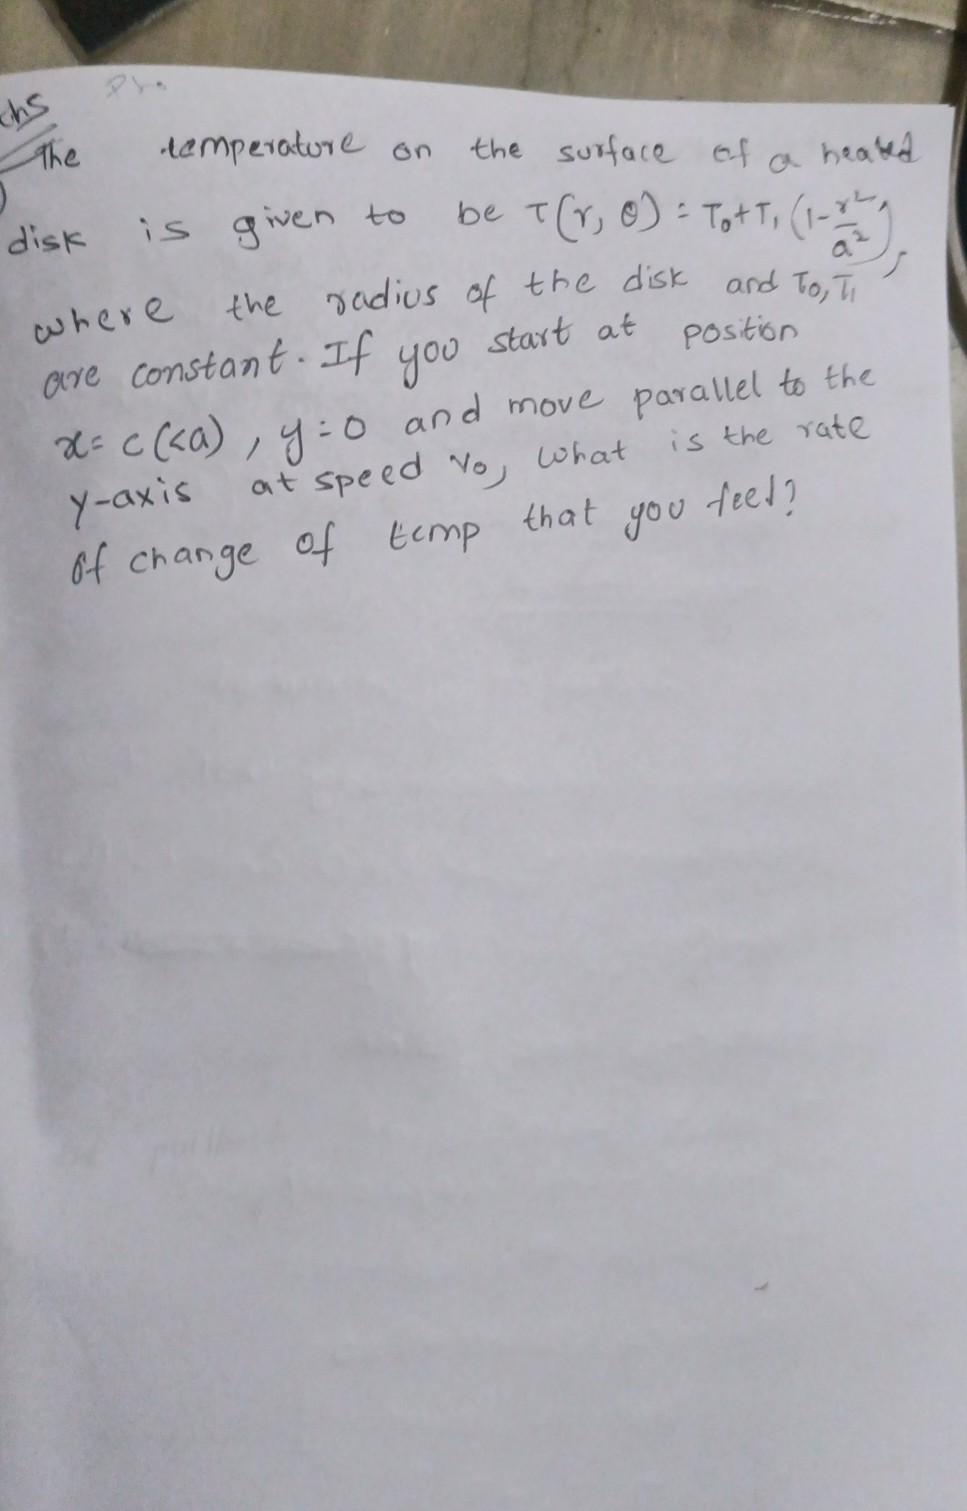 The temperature on the surface of a heated
disk is given to be T(r, θ) = T₀+T₁ (1-r²/a²),
where the radius of the disk and T₀, T₁
are constant. If you start at position
x= c(<a), y=0 and move parallel to the
y-axis at speed V₀, What is the rate
of change of temp that you feel?